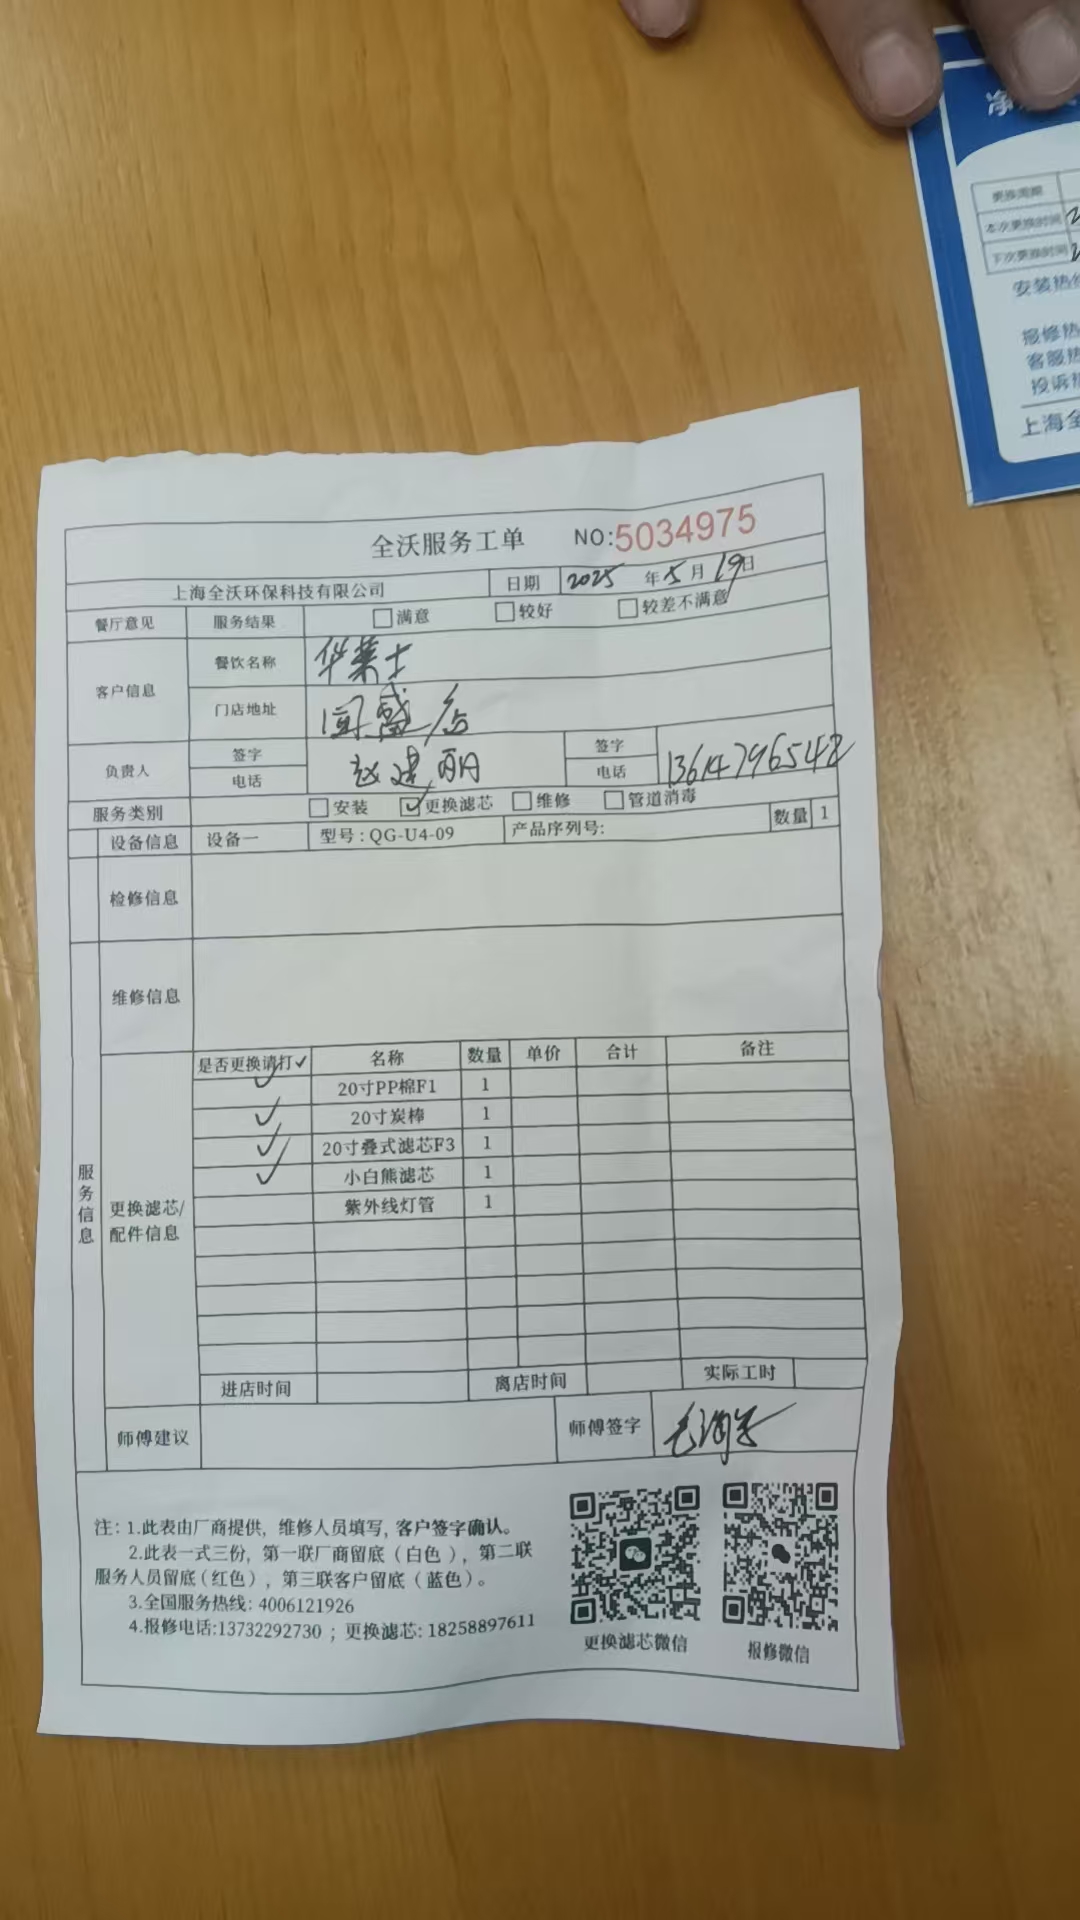 更换周期
本次更换时间
下次更换时间
安装热
报修热
客服热
投诉
上海全
全沃服务工单 NO:5034975
上海全沃环保科技有限公司 日期 2025 年 5 月 19 日
餐厅意见 服务结果 □满意 □较好 □较差不满意
客户信息 餐饮名称 华莱士
门店地址 国盛店
负责人 签字 电话 赵建丽 签字 电话 13614796542
服务类别 □安装 ☑更换滤芯 □维修 □管道消毒
设备信息 设备一 型号:QG-U4-09 产品序列号: 数量 1
检修信息
维修信息
服务信息
更换滤芯/配件信息
是否更换请打✓ 名称 数量 单价 合计 备注
✓ 20寸PP棉F1 1
✓ 20寸炭棒 1
✓ 20寸叠式滤芯F3 1
✓ 小白熊滤芯 1
紫外线灯管 1
进店时间 离店时间 实际工时
师傅建议 师傅签字
注: 1.此表由厂商提供, 维修人员填写, 客户签字确认。
2.此表一式三份, 第一联厂商留底(白色), 第二联
服务人员留底(红色), 第三联客户留底(蓝色)。
3.全国服务热线: 4006121926
4.报修电话:13732292730 ; 更换滤芯: 18258897611
更换滤芯微信 报修微信